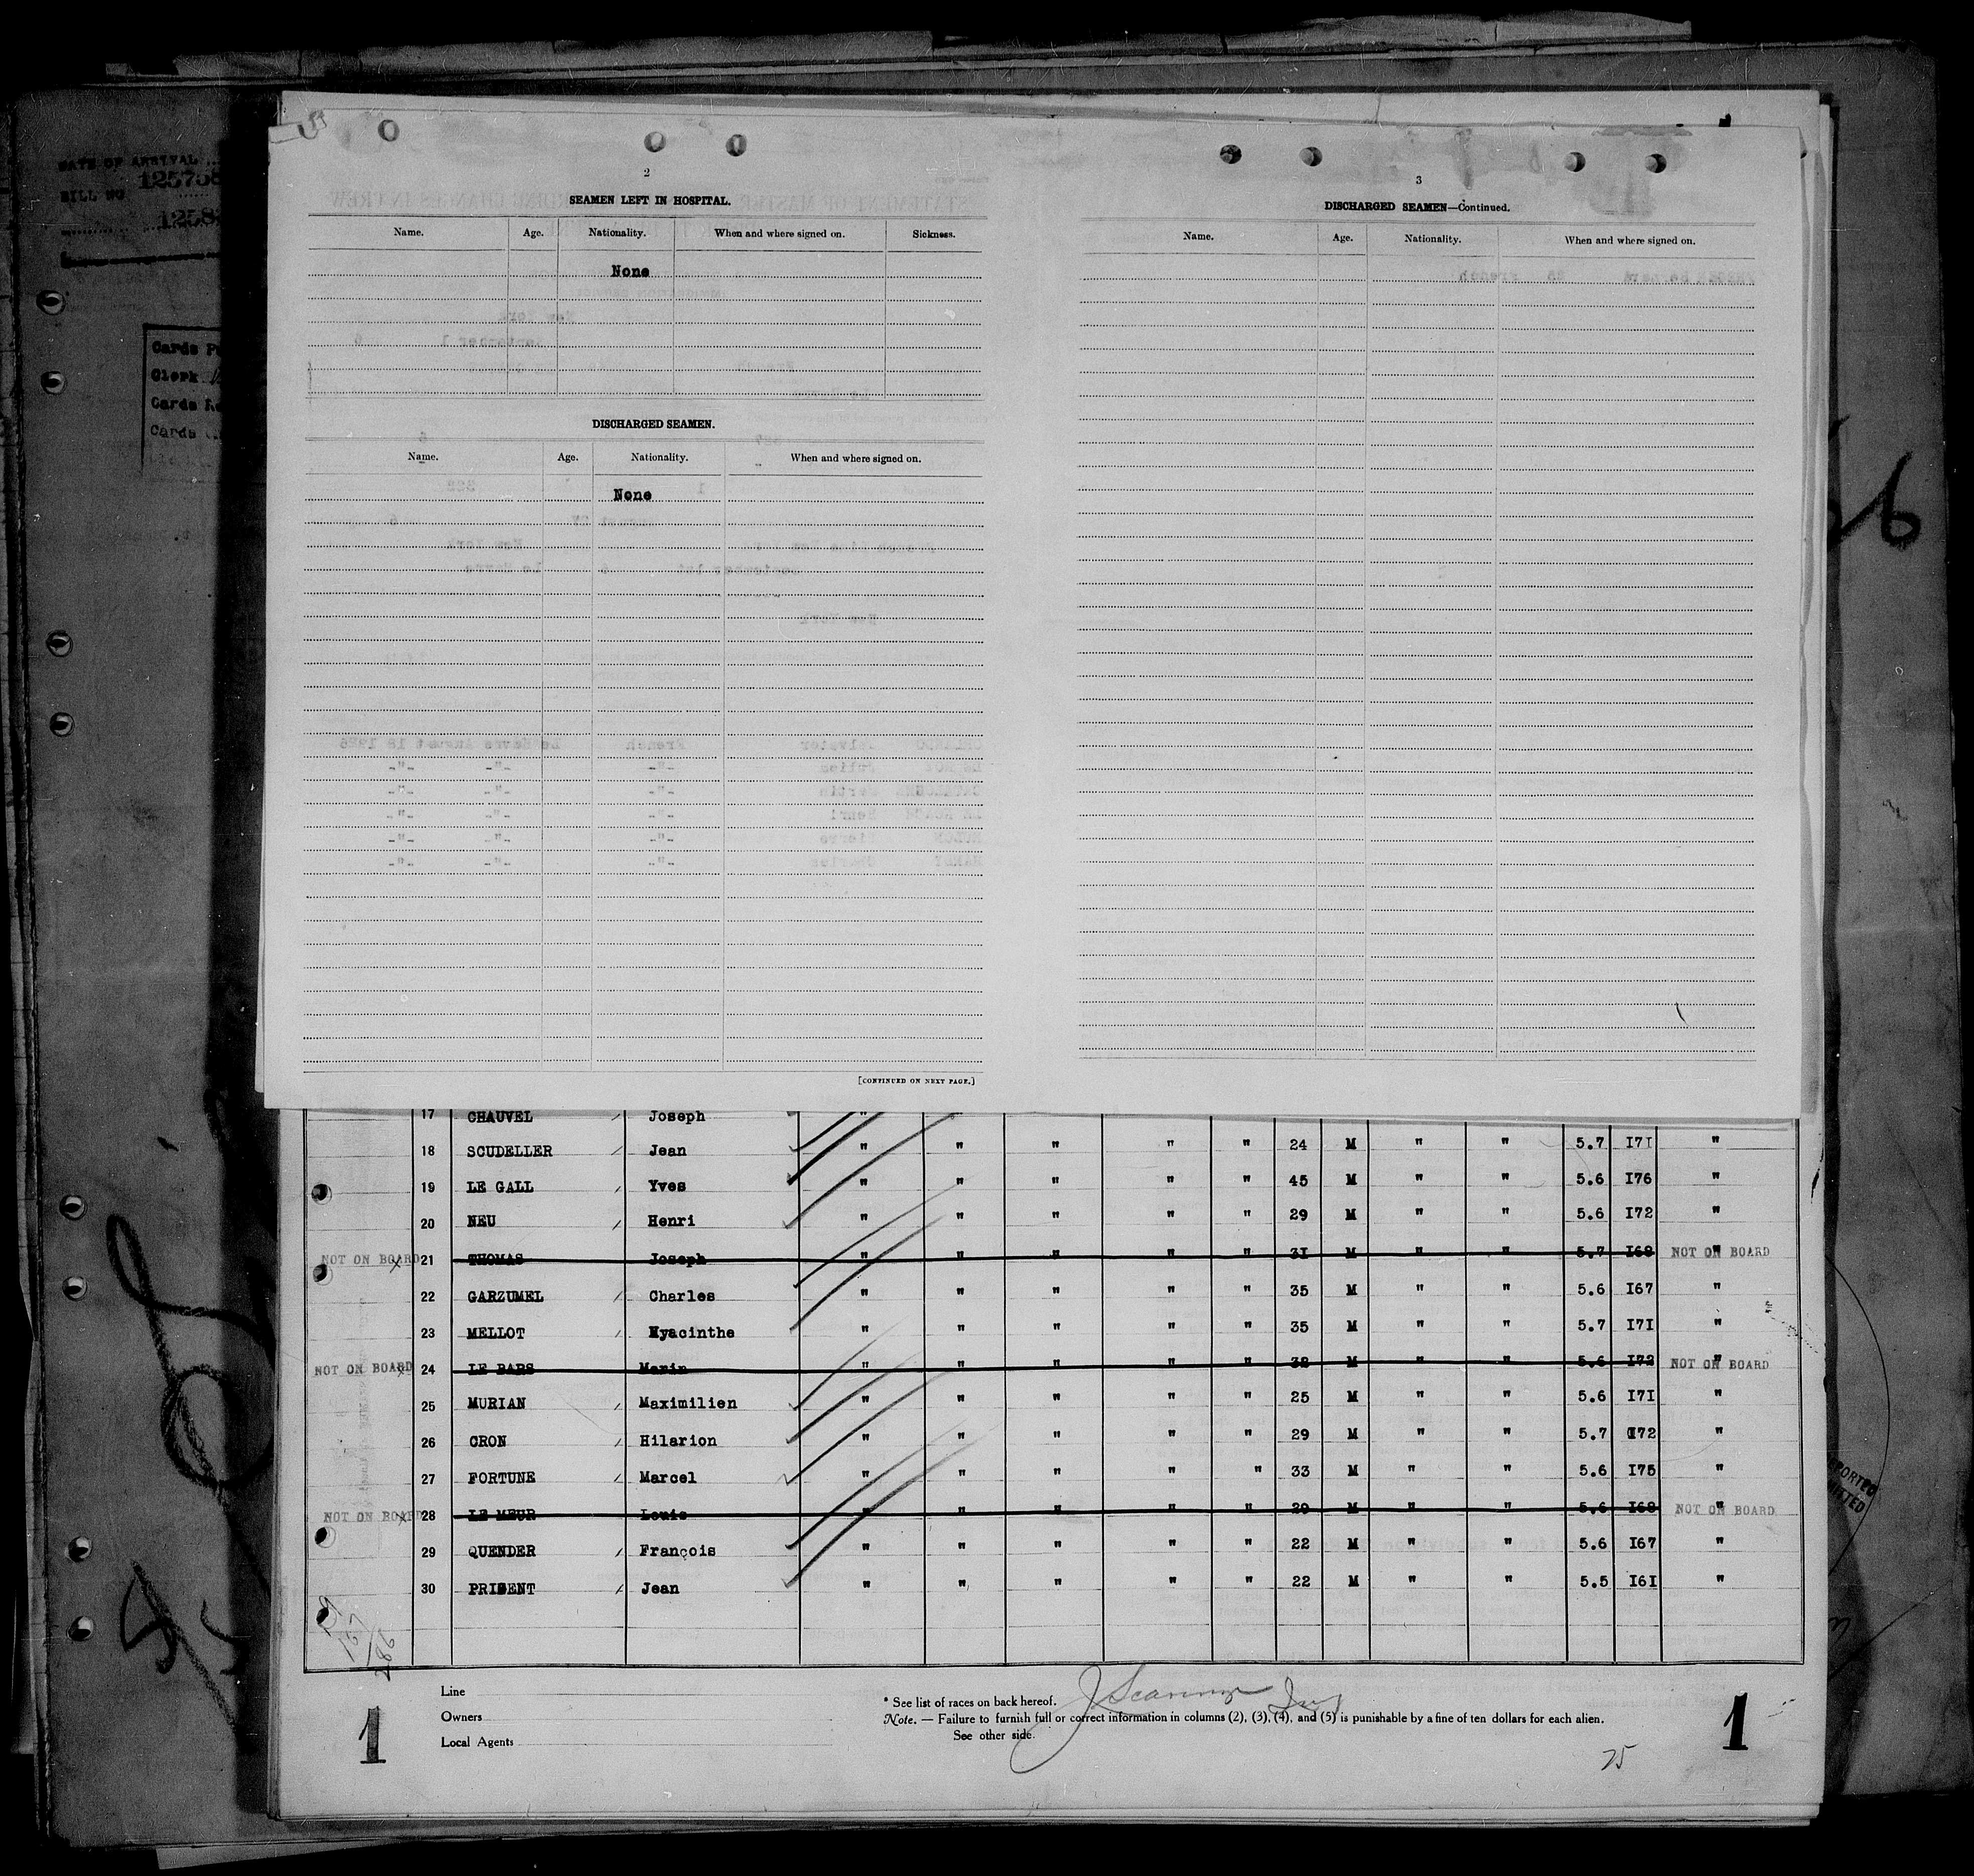 DATE OF ARRIVAL
BILL NO
Clerk
2
SEAMEN LEFT IN HOSPITAL.
Name. Age. Nationality. When and where signed on. Sickness.
None
DISCHARGED SEAMEN.
Name. Age. Nationality. When and where signed on.
None
[CONTINUED ON NEXT PAGE.]
3
DISCHARGED SEAMEN—Continued.
Name. Age. Nationality. When and where signed on.
17 CHAUVEL Joseph "
18 SCUDELLER Jean " " " " " 24 M " " 5.7 I7I "
19 LE GALL Yves " " " " " 45 M " " 5.6 I76 "
20 NEU Henri " " " " " 29 M " " 5.6 I72 "
NOT ON BOARD 21 THOMAS Joseph " " " " " 3I M " " 5.7 I68 NOT ON BOARD
22 GARZUMEL Charles " " " " " 35 M " " 5.6 I67 "
23 MELLOT Hyacinthe " " " " " 35 M " " 5.7 I7I "
NOT ON BOARD 24 LE BARS Marin " " " " " 32 M " " 5.6 I72 NOT ON BOARD
25 MURIAN Maximilien " " " " " 25 M " " 5.6 I7I "
26 CRON Hilarion " " " " " 29 M " " 5.7 I72 "
27 FORTUNE Marcel " " " " " 33 M " " 5.6 I75 "
NOT ON BOARD 28 LE MEUR Louis " " " " " 29 M " " 5.6 I68 NOT ON BOARD
29 QUENDER François " " " " " 22 M " " 5.6 I67 "
30 PRIGENT Jean " " " " " 22 M " " 5.5 I6I "
Line
Owners
Local Agents
* See list of races on back hereof.
Note. — Failure to furnish full or correct information in columns (2), (3), (4), and (5) is punishable by a fine of ten dollars for each alien.
See other side.
1
1
75